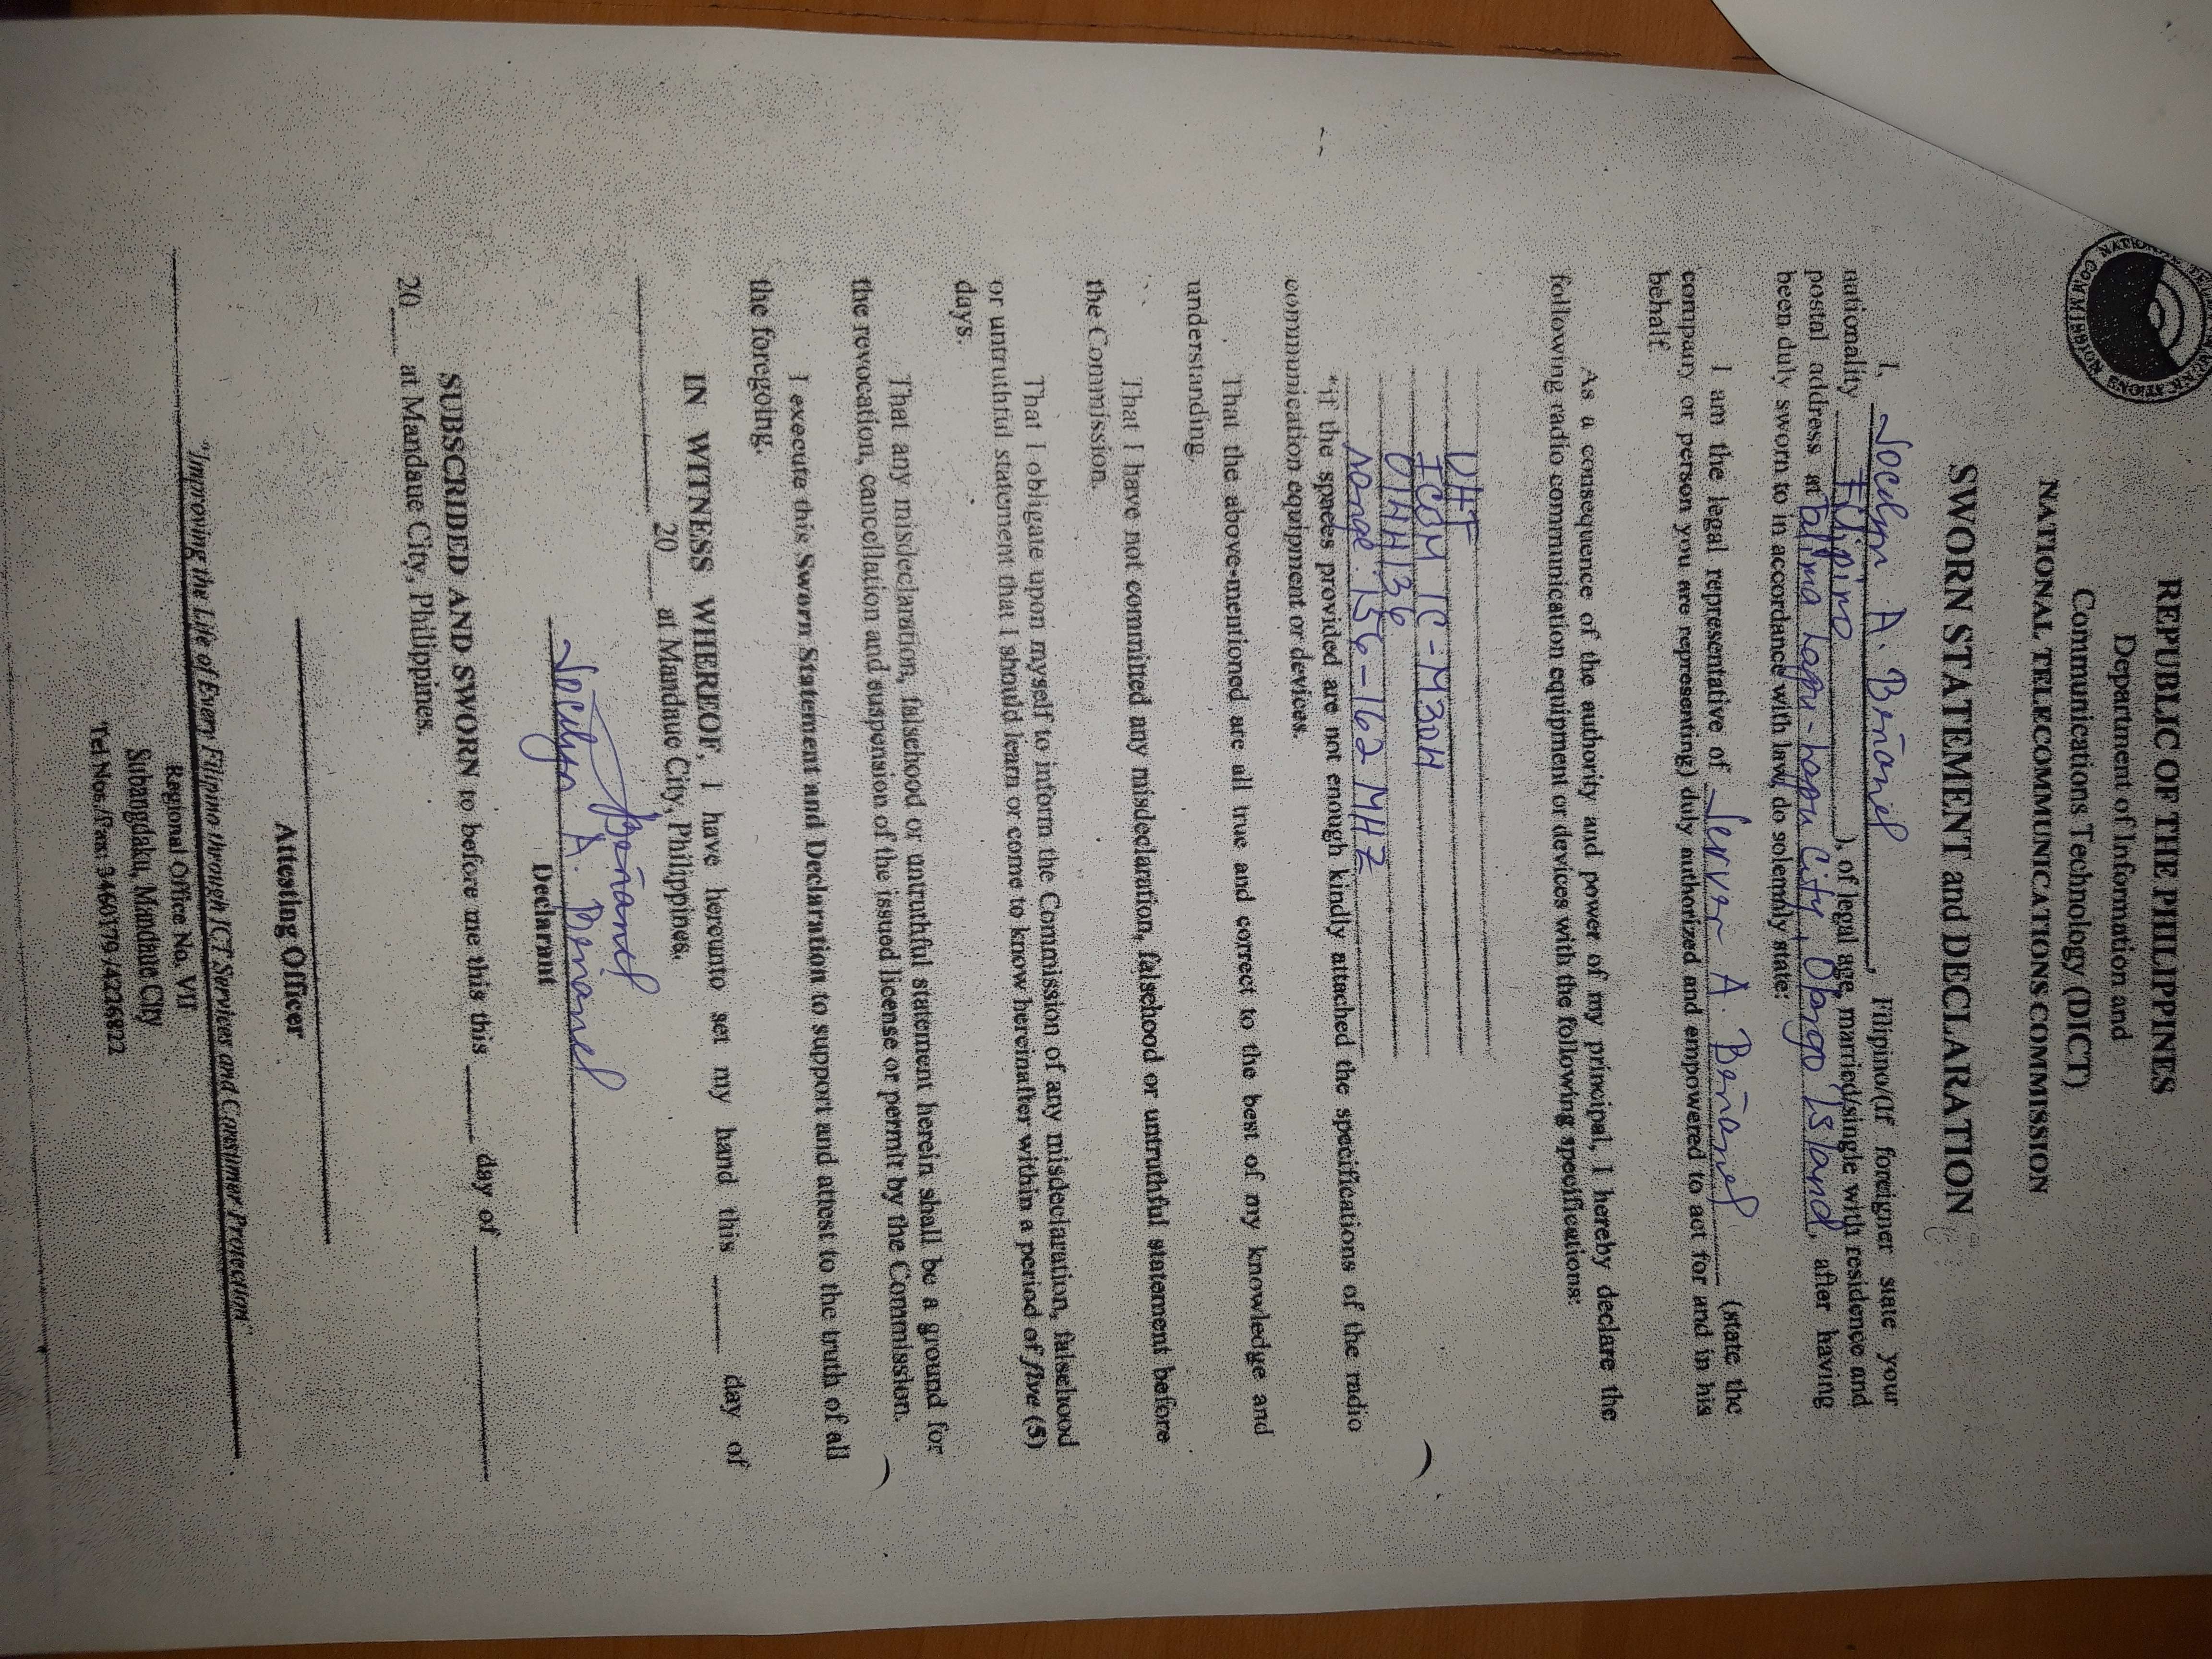 REPUBLIC OF THE PHILIPPINES
Department of Information and
Communications Technology (DICT)
NATIONAL TELECOMMUNICATIONS COMMISSION
SWORN STATEMENT and DECLARATION
I, Jocelyn A. Beñanel, Filipino/(If foreigner state your
nationality Filipino), of legal age, married/single with residence and
postal address at Lapu-lapu City, Olango Island, after having
been duly sworn to in accordance with law, do solemnly state:
I am the legal representative of Jerver A. Beñanel (state the
company or person you are representing) duly authorized and empowered to act for and in his
behalf.
As a consequence of the authority and power of my principal, I hereby declare the
following radio communication equipment or devices with the following specifications:
ICOM IC-M304
range: 156-162 MHZ
*if the spaces provided are not enough kindly attached the specifications of the radio
communication equipment or devices.
That the above-mentioned are all true and correct to the best of my knowledge and
understanding.
That I have not committed any misdeclaration, falsehood or untruthful statement before
the Commission.
That I obligate upon myself to inform the Commission of any misdeclaration, falsehood
or untruthful statement that I should learn or come to know hereinafter within a period of five (5)
days.
That any misdeclaration, falsehood or untruthful statement herein shall be a ground for
the revocation, cancellation and suspension of the issued license or permit by the Commission.
I execute this Sworn Statement and Declaration to support and attest to the truth of all
the foregoing.
IN WITNESS WHEREOF, I have hereunto set my hand this ____ day of
________ 20___ at Mandaue City, Philippines.
Jocelyn A. Beñanel
Declarant
SUBSCRIBED AND SWORN to before me this this ____ day of ________
20___ at Mandaue City, Philippines.
Attesting Officer
"Improving the Life of Every Filipino through ICT Services and Consumer Protection"
Regional Office No. VII
Subangdaku, Mandaue City
Tel Nos./Fax: 3460179 /4226822